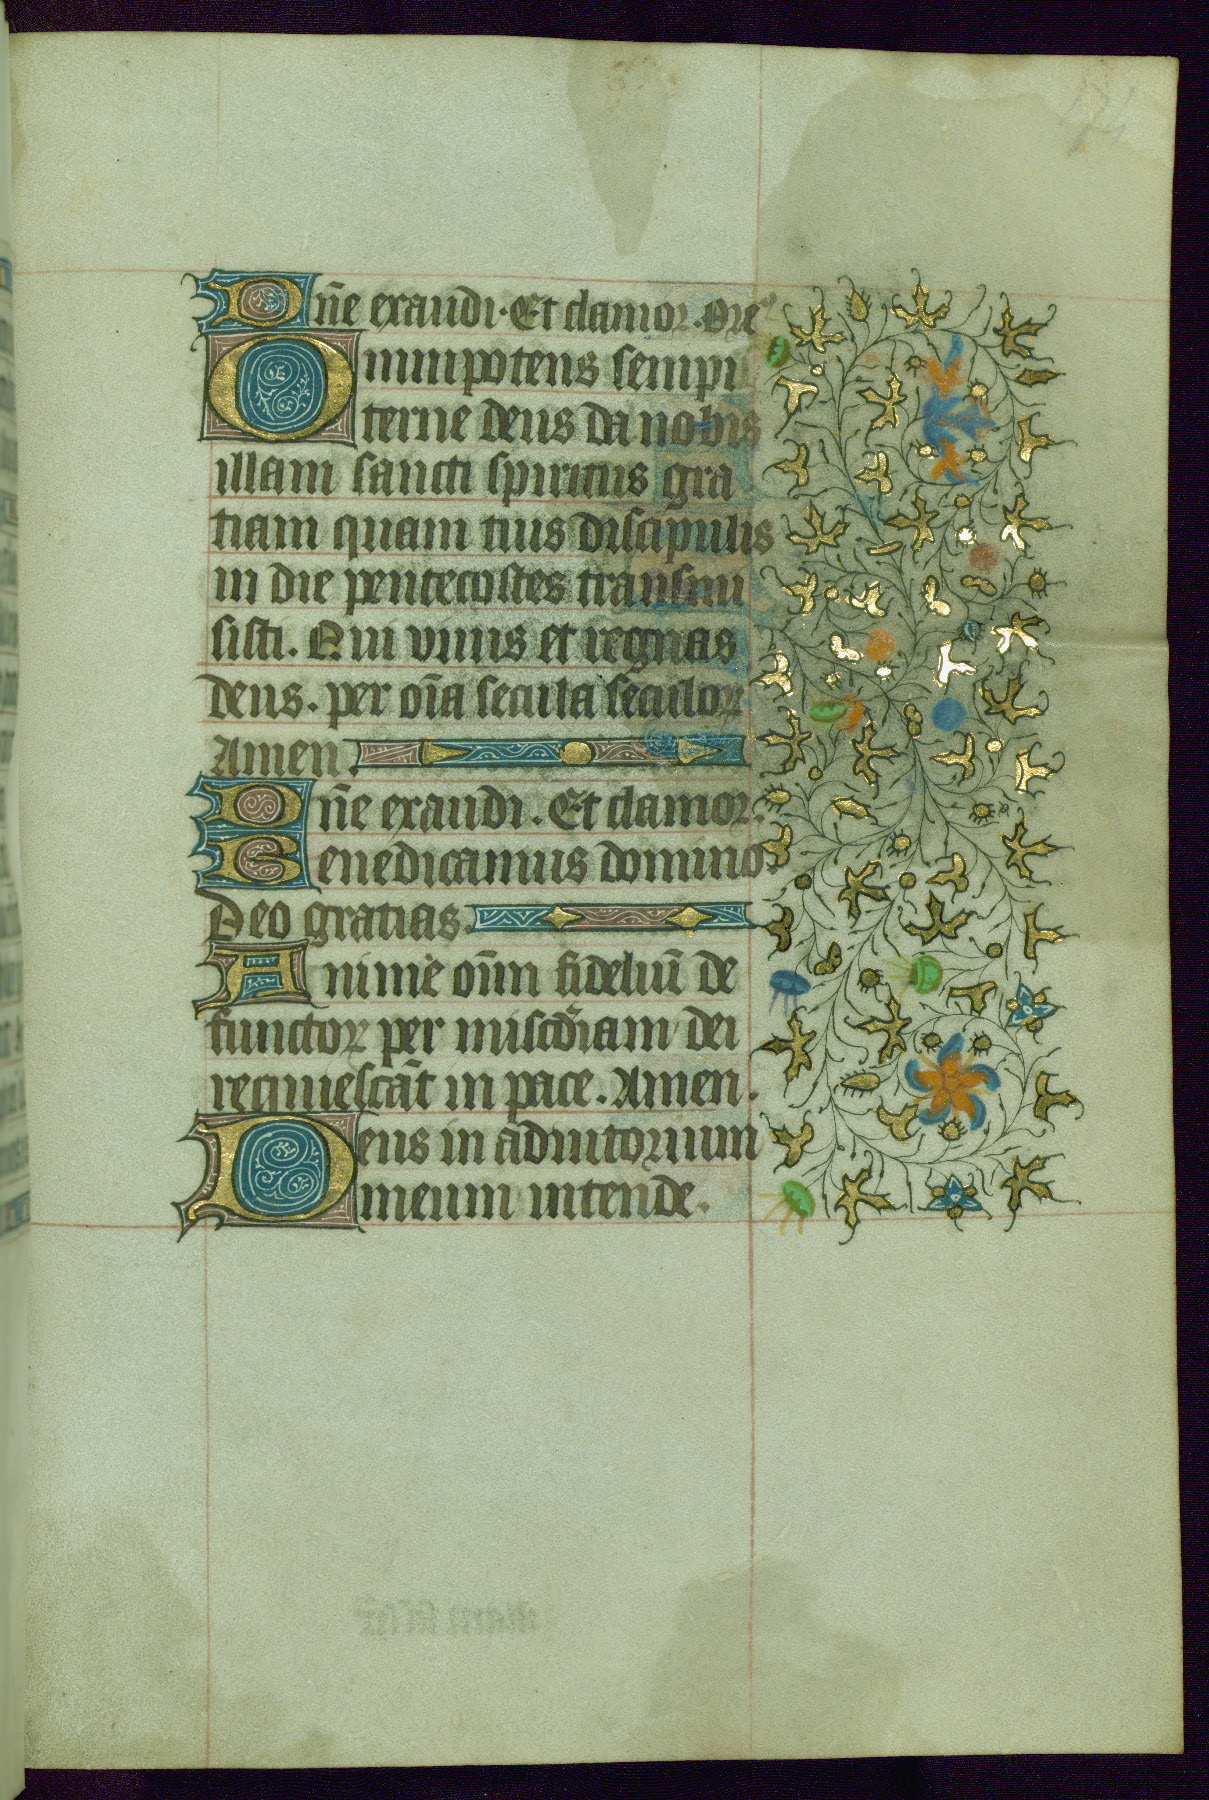 Dñe exaudi. Et clamor. Ore
Omnipotens sempi
terne deus da nobis
illam sancti spiritus gra
tiam quam tuis discipulis
in die pentecostes transmi
sisti. Qui viuis et regnas
deus. per oīa secula seculor
Amen.
Dñe exaudi. Et clamor.
Benedicamus domino.
Deo gratias.
Anime oīm fideliū de
functor per misc̄diam dei
requiescāt in pace. Amen.
Deus in adiutorium
meum intende.